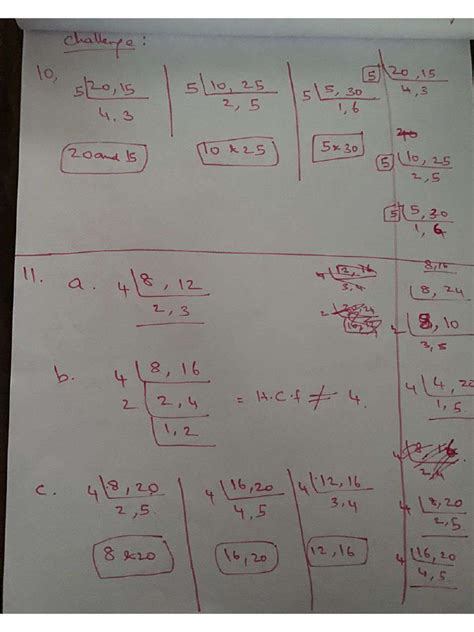 Challenge :
10,
5 20, 15
4, 3
20 and 15
5 10, 25
2, 5
10 & 25
5 5, 30
1, 6
5 & 30
5 20, 15
4, 3
5 10, 25
2, 5
5 5, 30
1, 6
11. a. 4 8, 12
2, 3
4 12, 16
3, 4
8, 16
8, 24
2 8, 10
3, 5
b. 4 8, 16
2 2, 4
1, 2
= H.C.f ≠ 4.
4 4, 20
1, 5
c. 4 8, 20
2, 5.
8 & 20
4 16, 20
4, 5
16, 20
4 12, 16
3, 4
12, 16
4 8, 20
2, 5
4 16, 20
4, 5